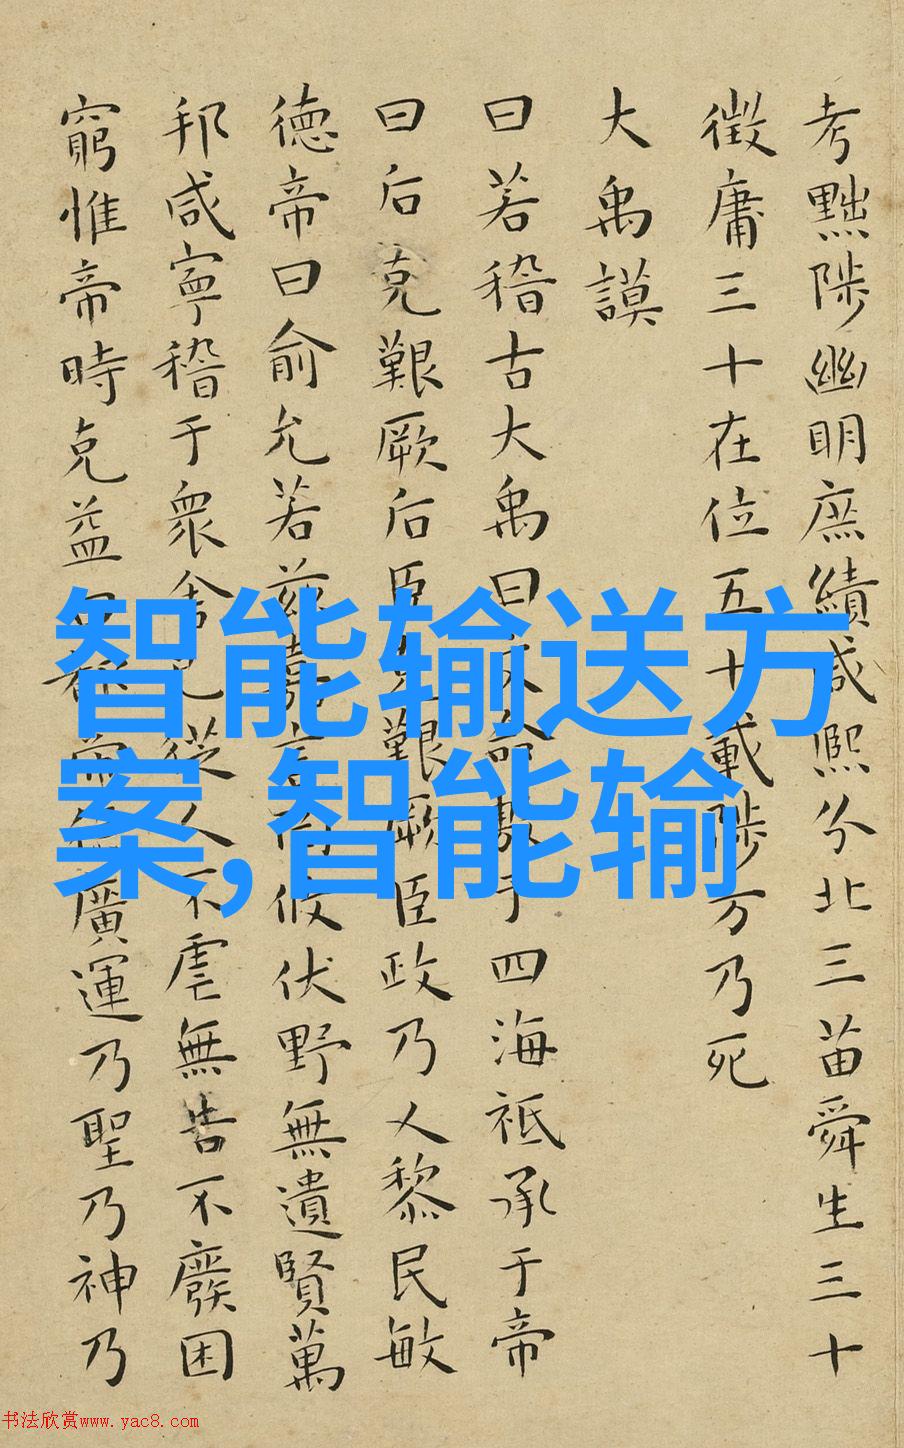 考黜陟幽明庶績咸熙分北三苗舜生三十
徵庸三十在位五十載陟方乃死
大禹謨
曰若稽古大禹曰文命敷于四海祗承于帝
曰后克艱厥后臣克艱厥臣政乃乂黎民敏
德帝曰俞允若茲嘉言罔攸伏野無遺賢萬
邦咸寧稽于衆舍己從人不虐無告不廢困
窮惟帝時克益曰都帝德廣運乃聖乃神乃
智能输送方
案,智能输
书法欣赏www.yac8.com